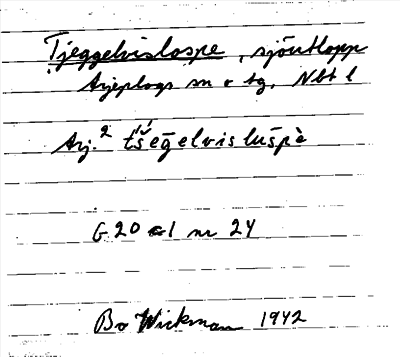 Tjeggelvisluspe, sjöutlopp
Arjeplogs sn o tg, Nbt l
Arj.² tšeg̅elvislušpè
G 20 a 1 nr 24
Bo Wickman 1942